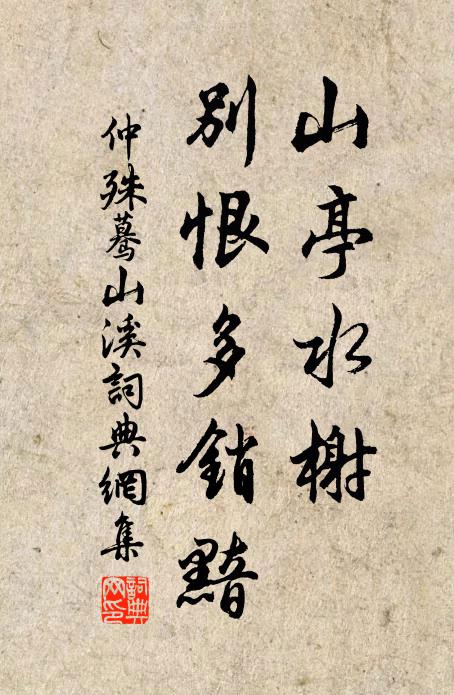 山亭水榭
別恨多銷黯
仲殊驀山溪詞典網集
詞典網印